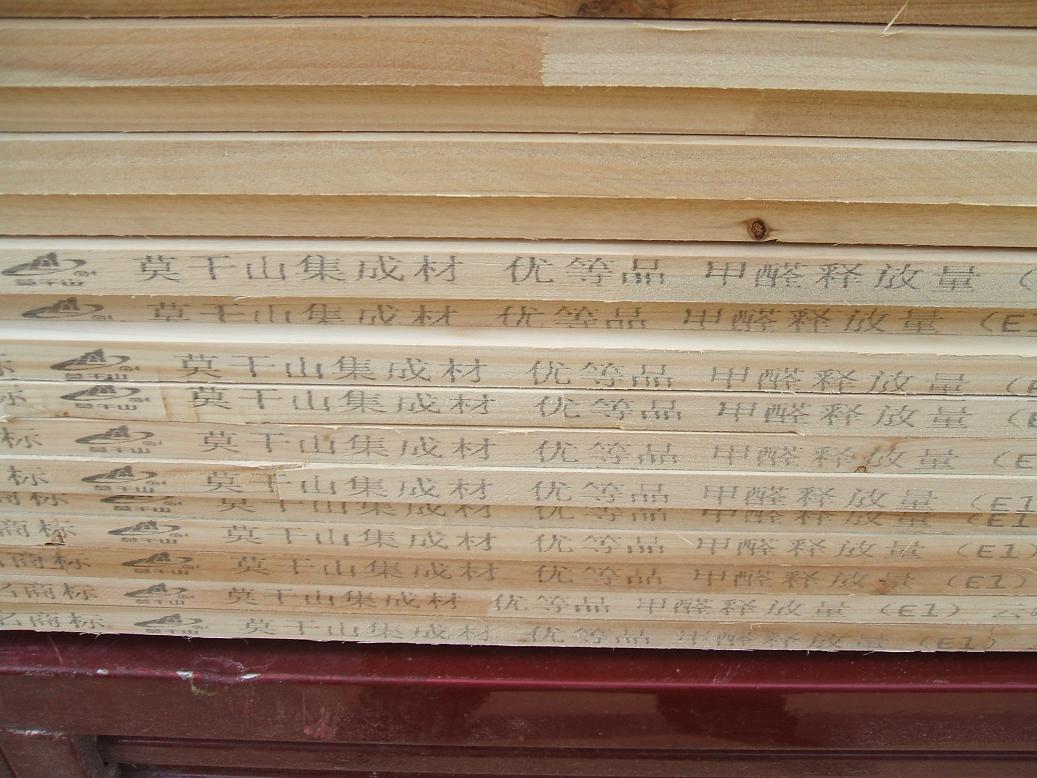 莫干山 莫干山集成材 优等品 甲醛释放量（
莫干山集成材 优等品 甲醛释放量（E1
标 莫干山 莫干山集成材 优等品 甲醛释放量（E
标 莫干山 莫干山集成材 优等品 甲醛释放量（E
标 莫干山 莫干山集成材 优等品 甲醛释放量（E
标 莫干山 莫干山集成材 优等品 甲醛释放量（E1
商标 莫干山集成材 优等品 甲醛释放量（E1
商标 莫干山 莫干山集成材 优等品 甲醛释放量（E1）
商标 莫干山 莫干山集成材 优等品 甲醛释放量（E1）
名商标 莫干山 莫干山集成材 优等品 甲醛释放量（E1）
名商标 莫干山 莫干山集成材 优等品 甲醛释放量（E1）